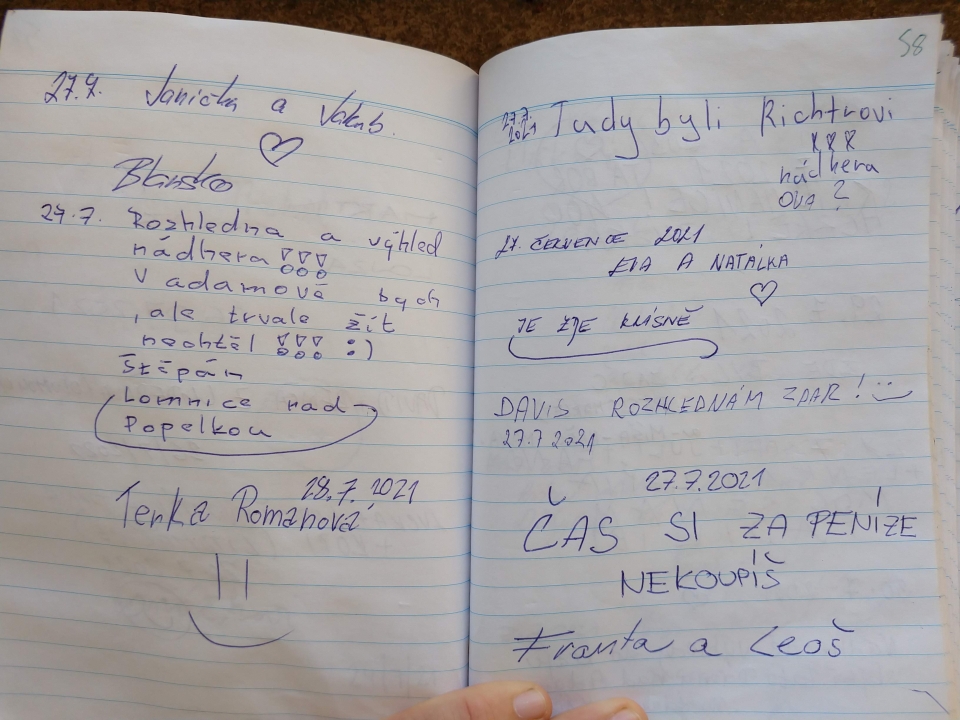 27.7. Janička a Jakub.
Blansko
27.7. Rozhledna a výhled
nádhera !!!
V adamově bych
,ale trvale žít
nechtěl !!! :)
Štěpán
Lomnice nad
Popelkou
28.7. 2021
Terka Romanová
58
27.7. 2021 Tudy byli Richtrovi
nádhera
27. ČERVENCE 2021
EVA A NATÁLKA
JE ZDE KRÁSNĚ
DAVIS ROZHLEDNÁM ZDAR!
27.7 2021
27.7.2021
ČAS SI ZA PENÍZE
NEKOUPÍŠ
Franta a Leoš